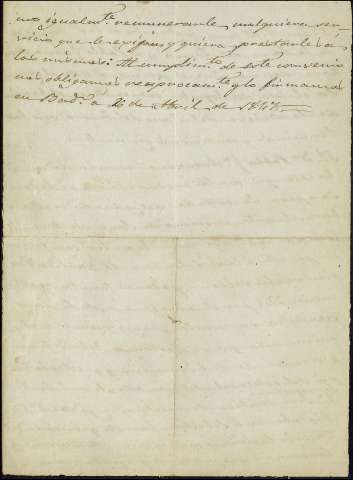 no igualmte. remunerarle cualquiera ser-
vicio que le exijan y quiera prestarles a
los mismos: Al cumplimto. de este convenio
nos obligamos reciprocamte. y lo firmamos
en a 2 de Abril de